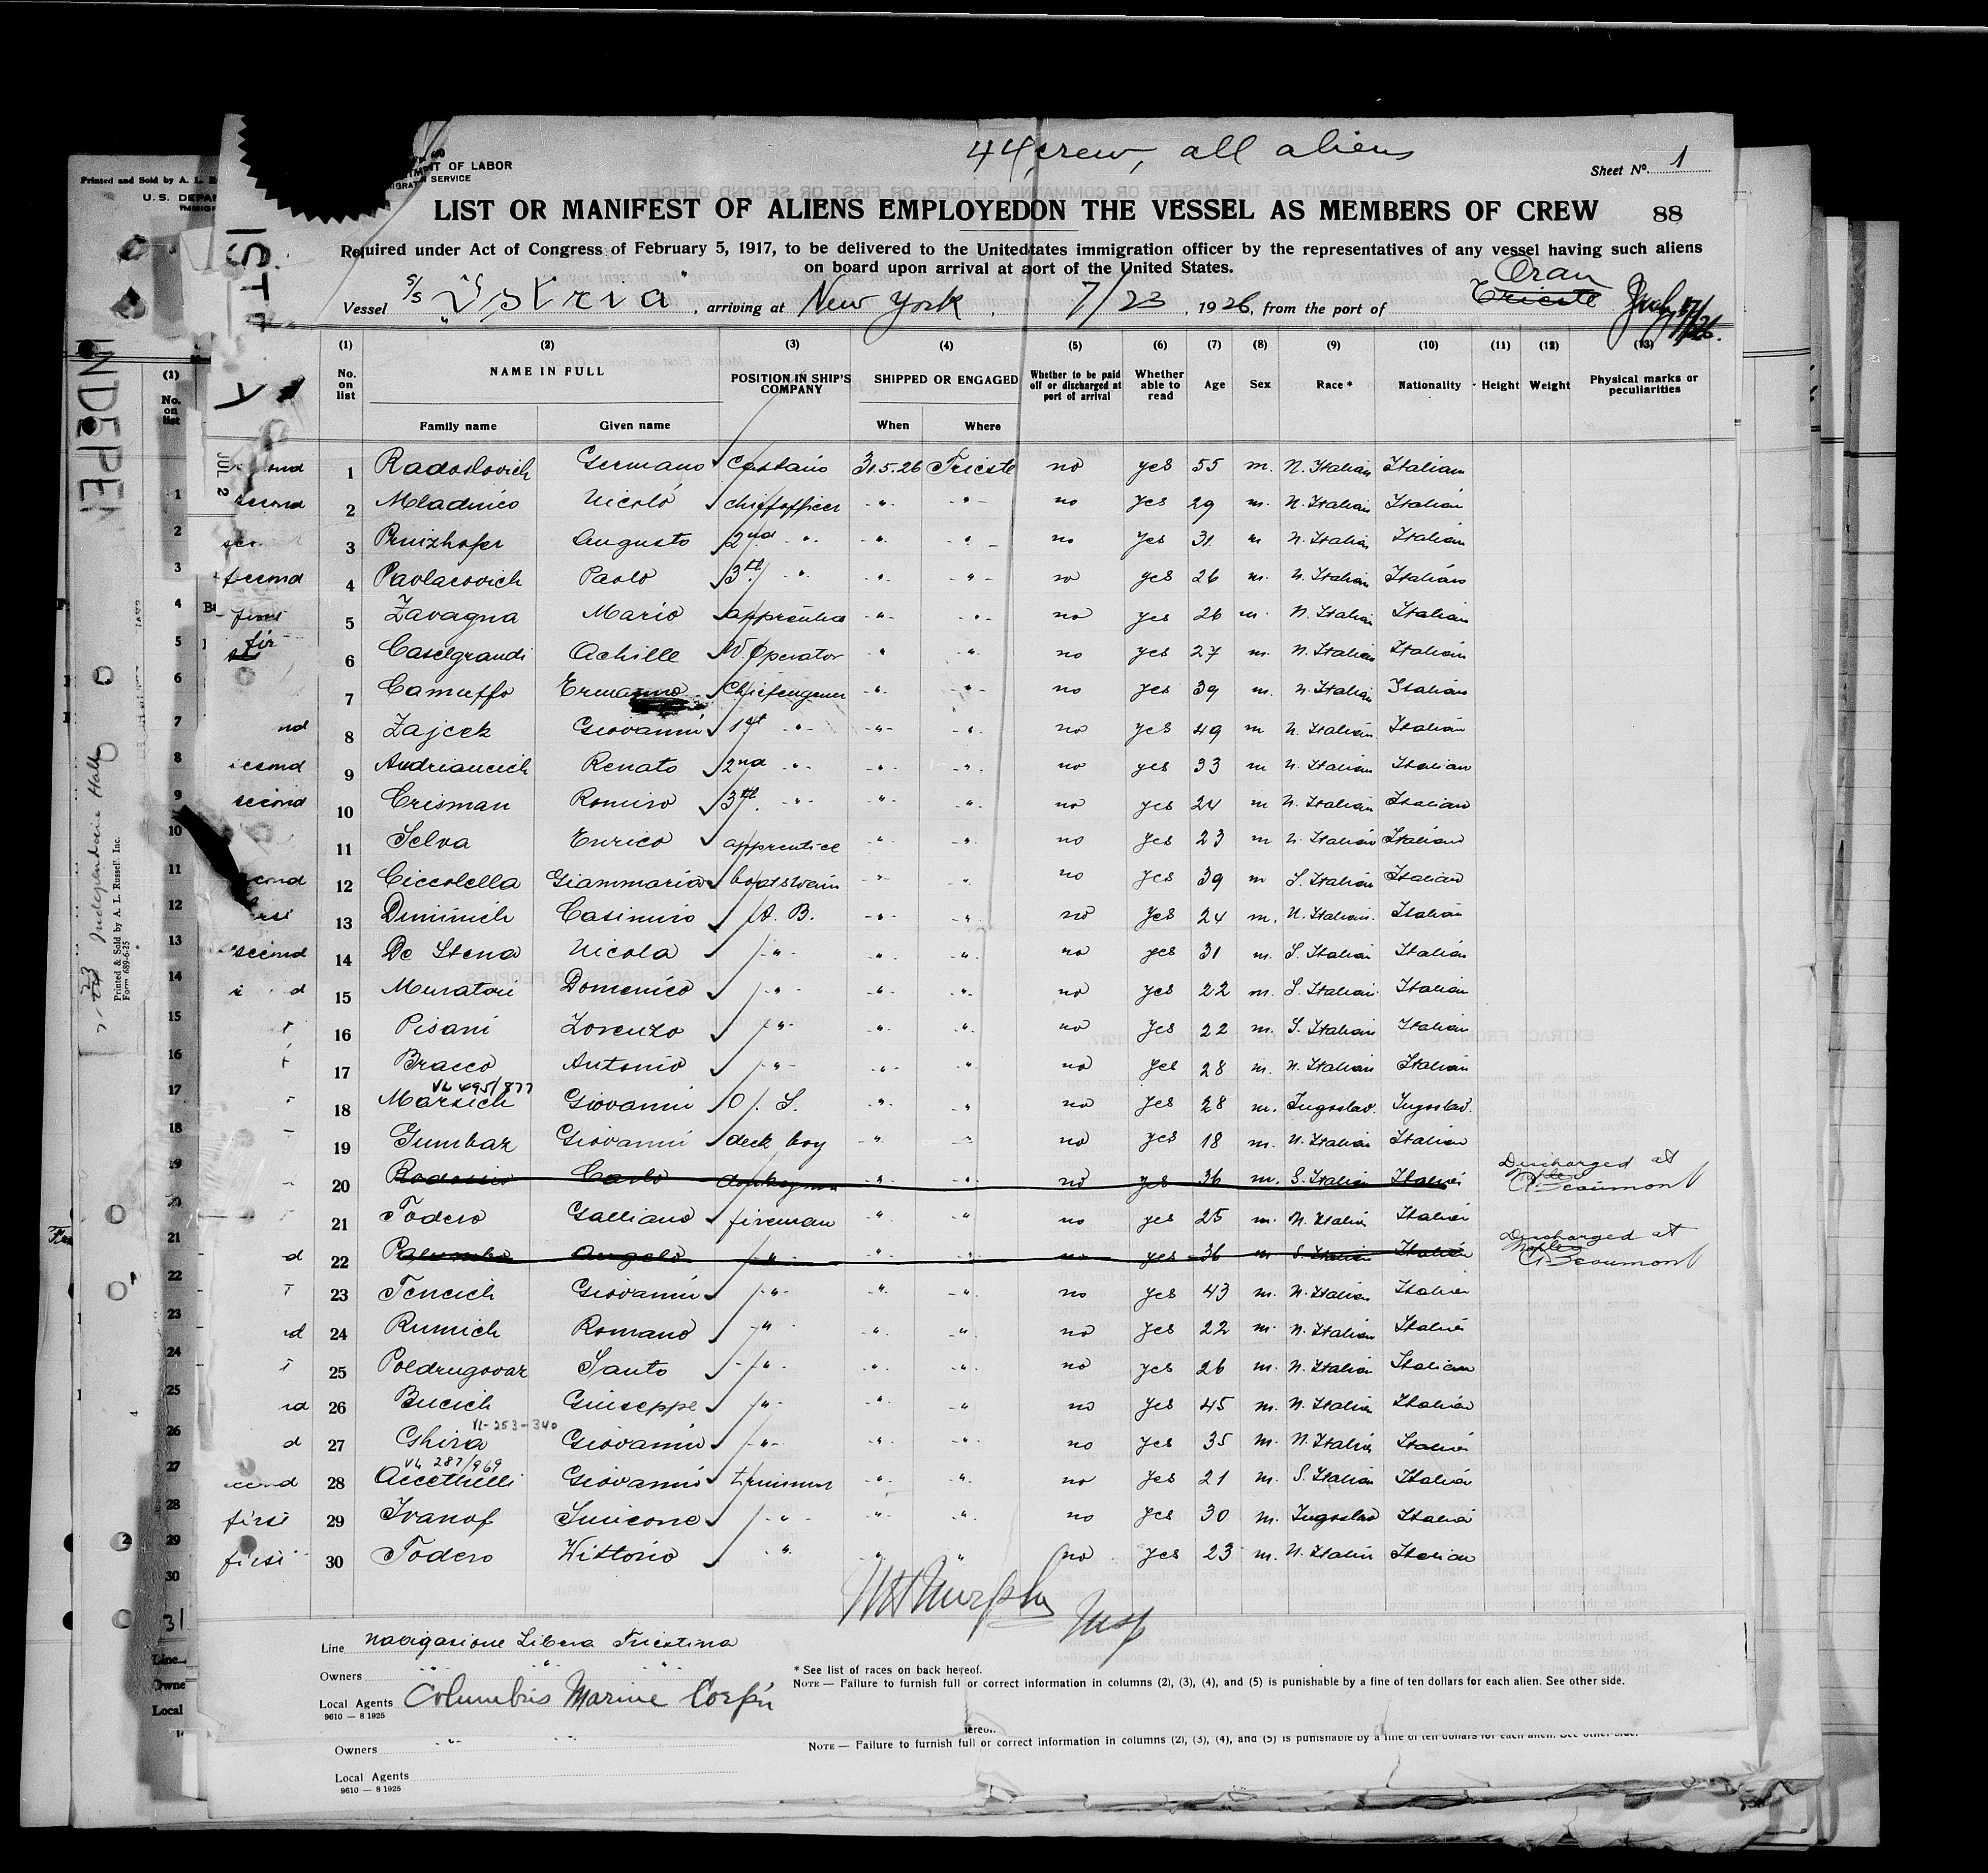 44 crew, all aliens
Sheet No. 1
OF LABOR
SERVICE
LIST OR MANIFEST OF ALIENS EMPLOYEDON THE VESSEL AS MEMBERS OF CREW 88
Required under Act of Congress of February 5, 1917, to be delivered to the Unitedtates immigration officer by the representatives of any vessel having such aliens
on board upon arrival at aort of the United States.
Oran
Vessel S/S "Istria", arriving at New York, 7/23, 1926, from the port of Trieste
(1) (2) (3) (4) (5) (6) (7) (8) (9) (10) (11) (12) (13)
No. on list NAME IN FULL POSITION IN SHIP'S COMPANY SHIPPED OR ENGAGED Whether to be paid off or discharged at port of arrival Whether able to read Age Sex Race * Nationality Height Weight Physical marks or peculiarities
Family name Given name When Where
1 Radoslovich Germano 31.5.26 Trieste no yes 55 m. N. Italian Italian
second 2 Mladinico Nicoló chiefofficer " " no yes 29 m. N. Italian Italian
3 Augusto 2nd " " " no yes 31 m N. Italian Italian
second 4 Paolacovich Paolo 3th " " " no yes 26 m. N. Italian Italian
5 Zavagna Mario apprentice " " no yes 26 m. N. Italian Italian
6 Caselgrandi Achille W. Operator " " no yes 27 m. N. Italian Italian
7 Camuffo Ermanno " " no yes 39 m. N. Italian Italian
8 Zajcek Giovanni 1st " " " no yes 49 m N. Italian Italian
9 Andriancich Renato 2nd " " " no yes 33 m N. Italian Italian
second 10 Crisman Romiro 3th " " " no yes 24 m N. Italian Italian
11 Selva Enrico apprentice " " no yes 23 m N. Italian Italian
12 Ciccolella Giammaria boatswain " " no yes 39 m S. Italian Italian
13 Diminich Casimiro A. B. " " no yes 24 m. N. Italian Italian
second 14 De Stena Nicola " " " no yes 31 m. S. Italian Italian
15 Muratori Domenico " " " no yes 22 m. S. Italian Italian
16 Pisani Lorenzo " " " no yes 22 m. S. Italian Italian
17 Bracco Antonio " " " no yes 28 m. N. Italian Italian
VL 495/877
18 Marsich Giovanni O. S. " " no yes 28 m. Jugoslav. Jugoslav.
19 Gumbaz Giovanni deck boy " " no yes 18 m. N. Italian Italian
20 Carlo donkeyman " " no yes 36 m. S. Italian Italian Discharged at Beaumont
21 Todero Galliano fireman " " no yes 25 m. N. Italian Italian
22 Palumbo Angelo " " " no yes 36 m S. Italian Italian Discharged at Naples Beaumont
23 Tencich Giovanni " " " no yes 43 m. N. Italian Italian
24 Rumich Romano " " " no yes 22 m. N. Italian Italian
25 Poldrugovaz Santo " " " no yes 26 m. N. Italian Italian
26 Bucich Giuseppe " " " no yes 45 m. N. Italian Italian
VL-253-340
27 Ghira Giovanni " " " no yes 35 m. N. Italian Italian
VL 287/969
28 Giovanni trimmer " " no yes 21 m. S. Italian Italian
first 29 Ivanof Simeone " " " no yes 30 m. Jugoslav Italian
first 30 Todero Vittorio " " " no yes 23 m. N. Italian Italian
Murphy
Insp
Line Navigazione Libera Triestina
Owners " " "
Local Agents Columbus Marine Corp'n
9610 — 8 1925
* See list of races on back hereof.
NOTE — Failure to furnish full or correct information in columns (2), (3), (4), and (5) is punishable by a fine of ten dollars for each alien. See other side.
hereof.
Owners
NOTE — Failure to furnish full or correct information in columns (2), (3), (4), and (5) is punishable by a fine of ten dollars for each alien. See other side.
Local Agents
9610 — 8 1925
Printed and Sold by A. L.
U. S. DEPA
INDEPEN
Independence Hall
Printed & Sold by A. L. Russell Inc.
Form 689-6-25